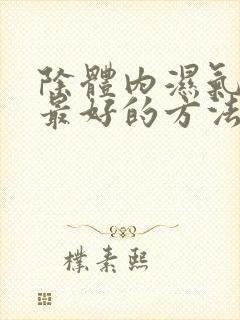 除體內濕氣
最好的方法
樸素熙